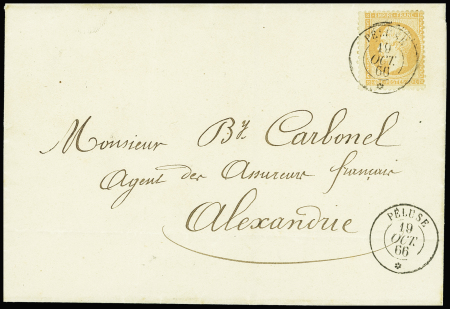 PÉLUSE
19
OCT.
66
Monsieur Bt. Carbonel
Agent des Assureurs français
Alexandrie
PÉLUSE
19
OCT.
66